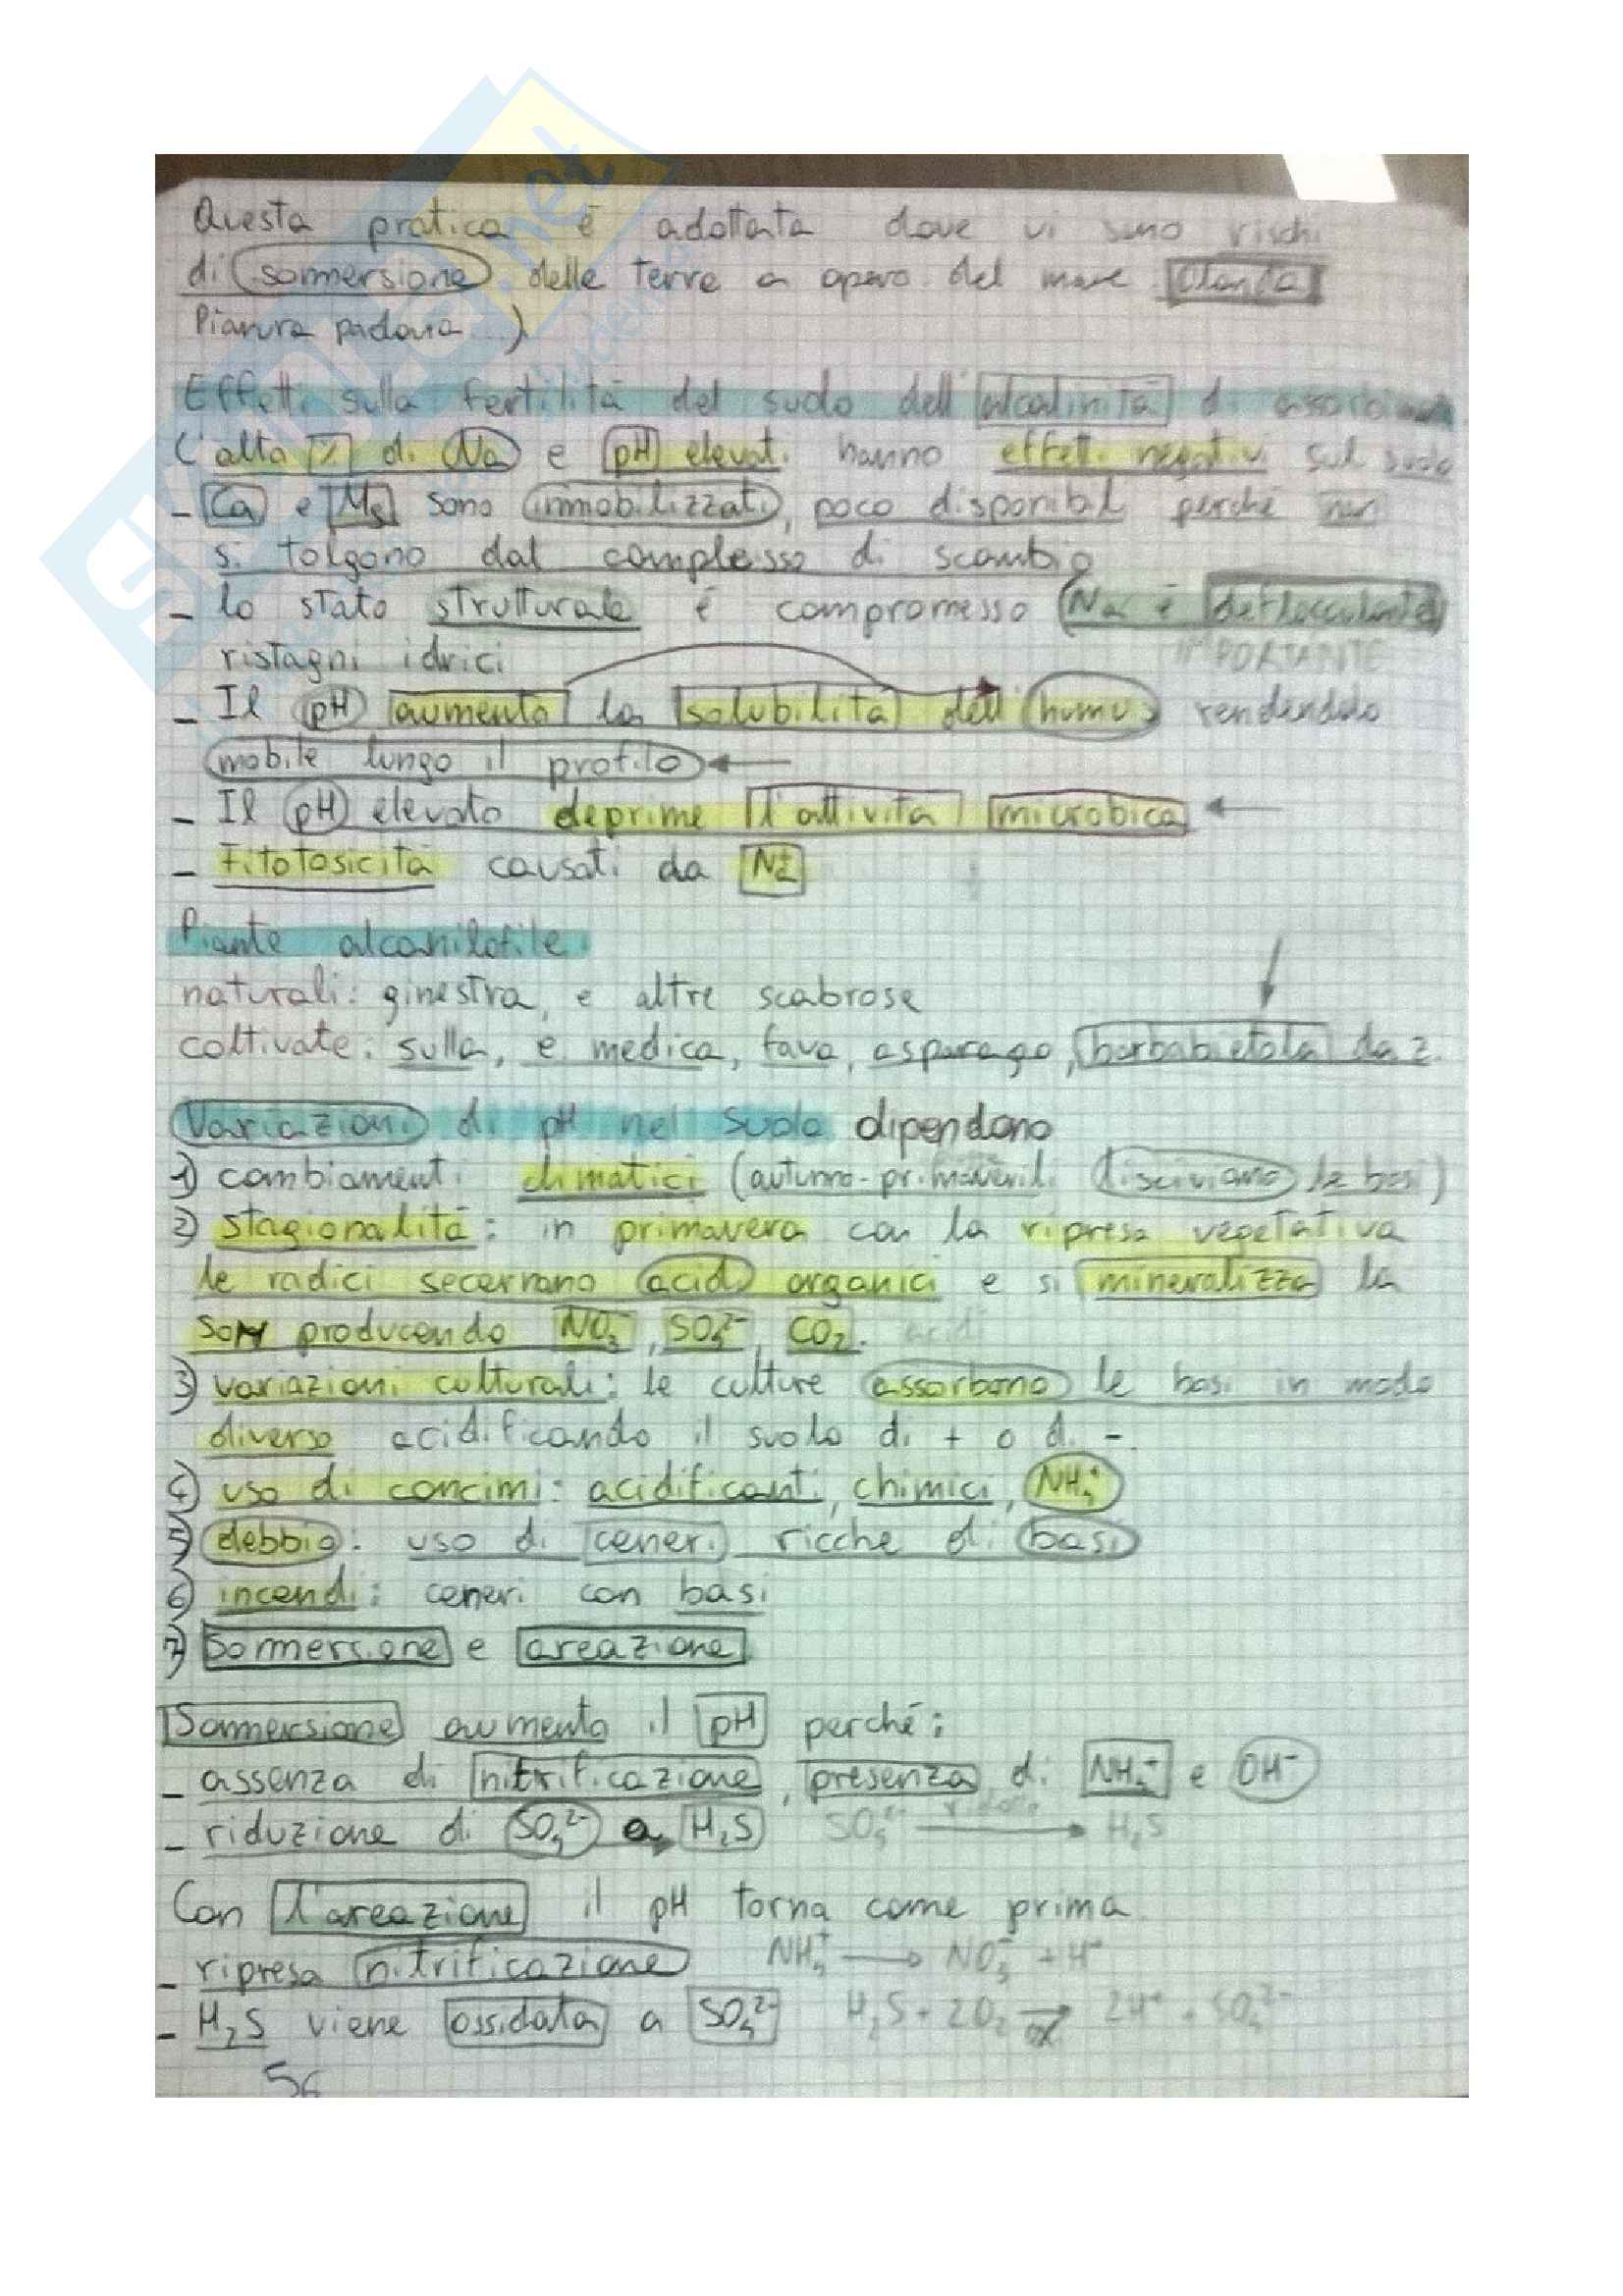 Questa pratica è adottata dove vi sono rischi
di sommersione delle terre a opera del mare (Olanda
Pianura padana...)
Effetti sulla fertilità del suolo dell'alcalinità di assorbimento
L'alta % di Na e pH elevati hanno effetti negativi sul suolo
- Ca e Mg sono immobilizzati, poco disponibili perché non
si tolgono dal complesso di scambio
- lo stato strutturale è compromesso (Na è deflocculante)
ristagni idrici IMPORTANTE
- Il pH aumenta la solubilità dell'humus rendendolo
mobile lungo il profilo
- Il pH elevato deprime l'attività microbica
- Fitotosicità causati da Na+
Piante alcanilofile:
naturali: ginestra, e altre scabrose
coltivate: sulla, e. medica, fava, asparago, barbabietola da z.
Variazioni di pH nel suolo dipendono
1) cambiamenti climatici (autunno-primaverili disciviano le basi)
2) stagionalità: in primavera con la ripresa vegetativa
le radici secernano acidi organici e si mineralizza la
SOM producendo NO3-, SO4 2-, CO2. acidi
3) variazioni culturali: le culture assorbono le basi in modo
diverso acidificando il suolo di + o di -.
4) uso di concimi: acidificanti, chimici, NH4+
5) debbio: uso di ceneri ricche di basi
6) incendi: ceneri con basi
7) Sommersione e areazione
Sommersione aumenta il pH perché:
- assenza di nitrificazione, presenza di NH4+ e OH-
- riduzione di SO4 2- a H2S SO4 2- → H2S
Con l'areazione il pH torna come prima
- ripresa nitrificazione NH4+ → NO3- + H+
- H2S viene ossidata a SO4 2- H2S + 2O2 → ox 2H+ + SO4 2-
56